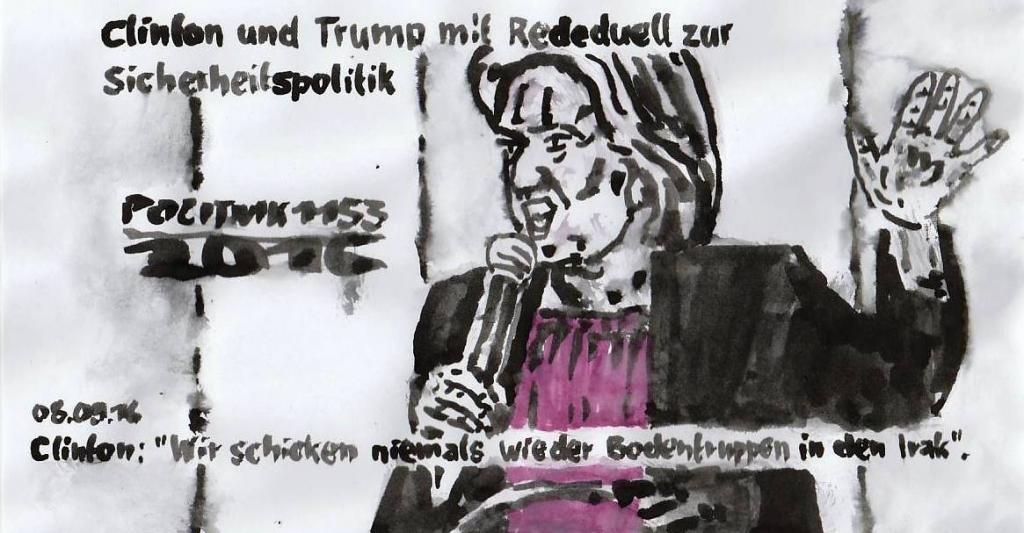 Clinton und Trump mit Rededuell zur
Sicherheitspolitik
POLITNIK 1153
2016
08.09.16
Clinton: "Wir schicken niemals wieder Bodentruppen in den Irak".